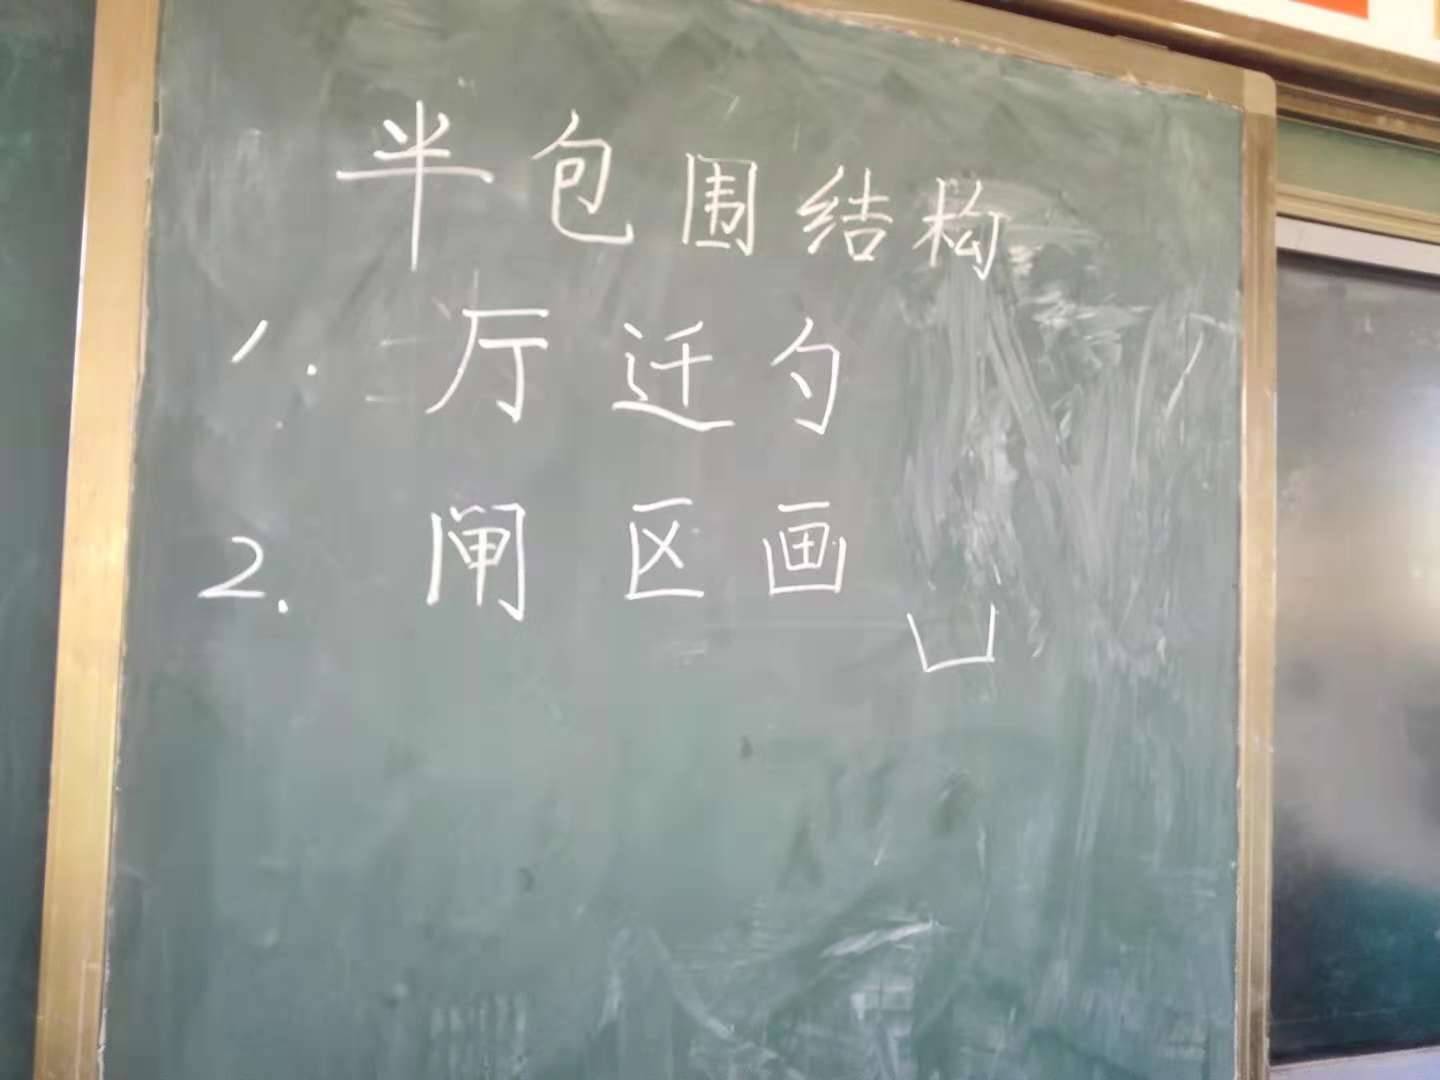 半包围结构
1. 厅迁勺
2. 闸区画凵